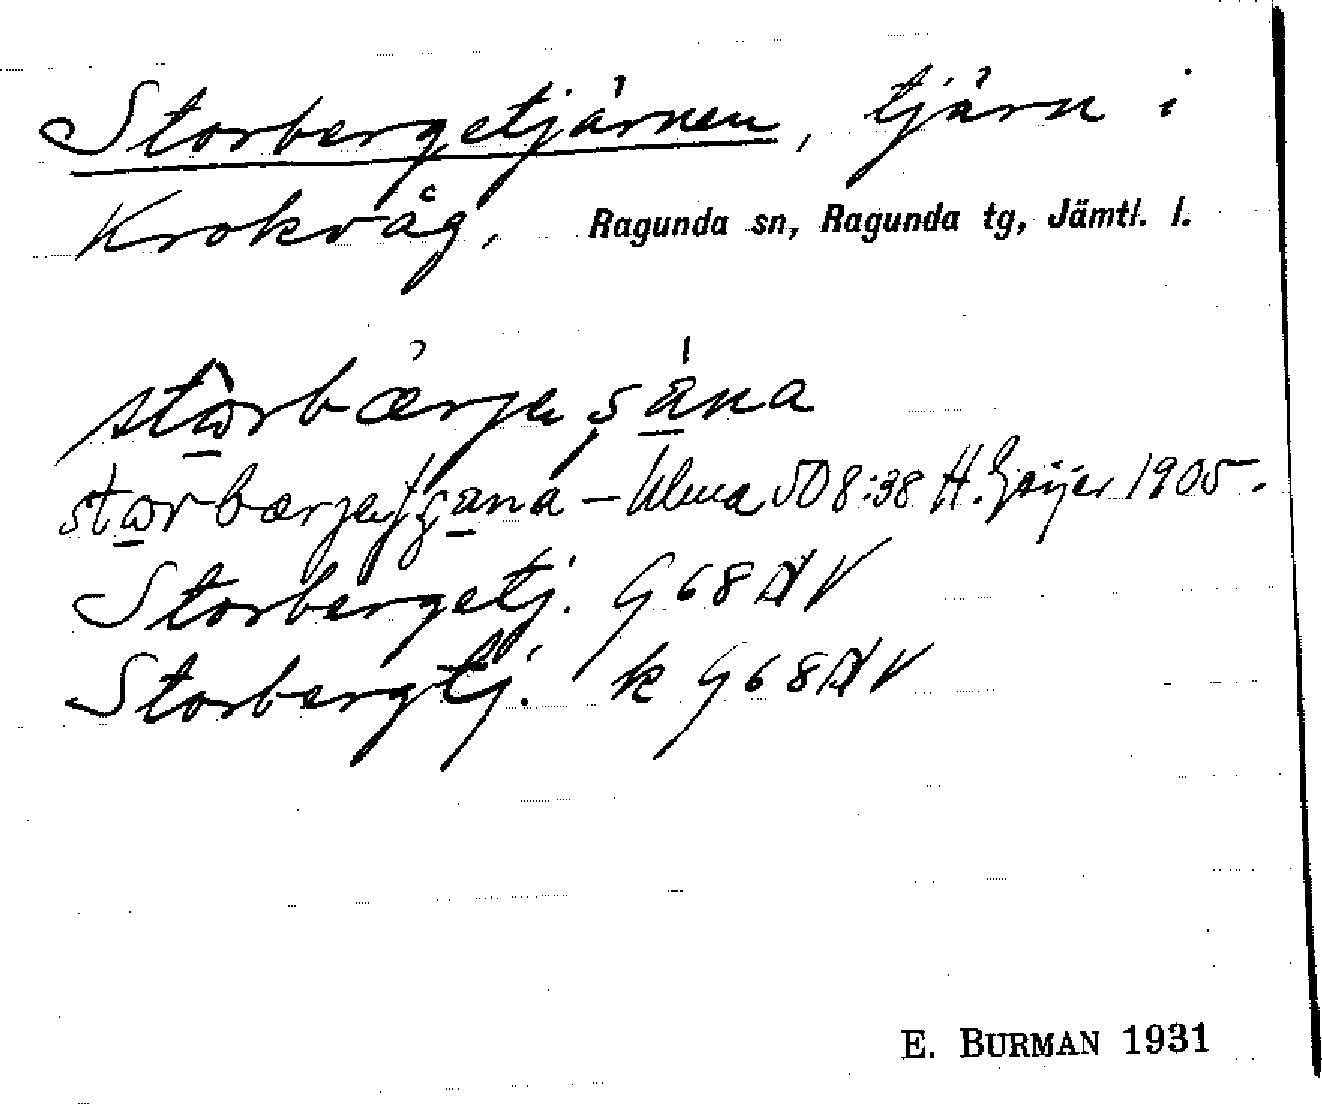 Storbergetjärnen, tjärn i
Krokvåg, Ragunda sn, Ragunda tg, Jämtl. l.
stωrbærjeʂäna
stωrbærjetʂäna – Ulma 508:38 H. Geijer 1905.
Storbergetj. G 68 AV
Storbergtj. k G 68 AV
E. BURMAN 1931